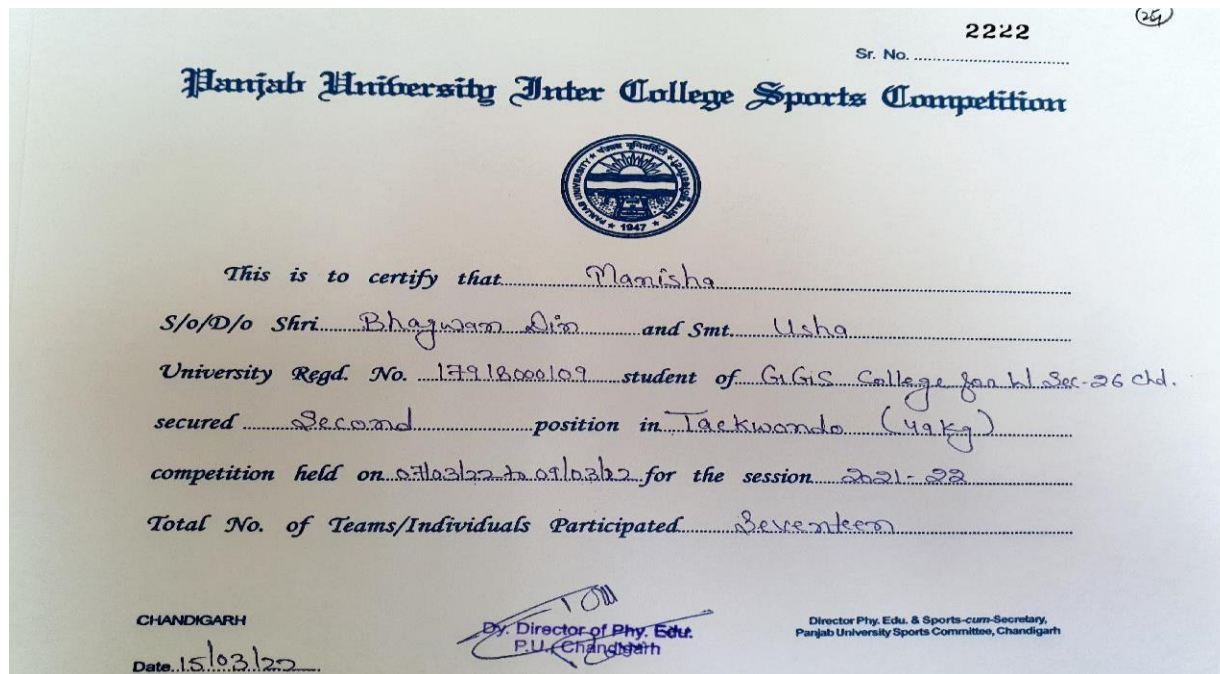 2222
Sr. No. ........................
Panjab University Inter College Sports Competition
PANJAB UNIVERSITY
पंजाब यूनिवर्सिटी
1947
This is to certify that Manisha
S/o/D/o Shri Bhagwan Din and Smt. Usha
University Regd. No. 17918000109 student of GGS College for W Sec-26 Chd.
secured Second position in Taekwondo (49kg)
competition held on 07/03/22 to 09/03/22 for the session 2021-22
Total No. of Teams/Individuals Participated Seventeen
CHANDIGARH
Date 15/03/22
Dy. Director of Phy. Edu.
P.U. Chandigarh
Director Phy. Edu. & Sports-cum-Secretary,
Panjab University Sports Committee, Chandigarh